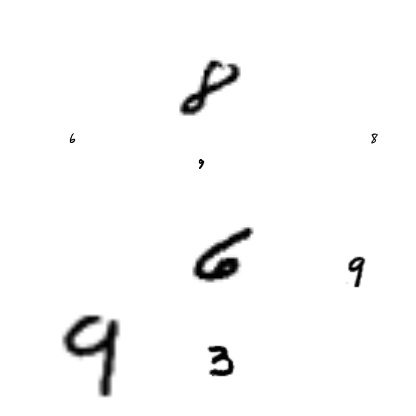 8
6 8
9
6
9
9 3